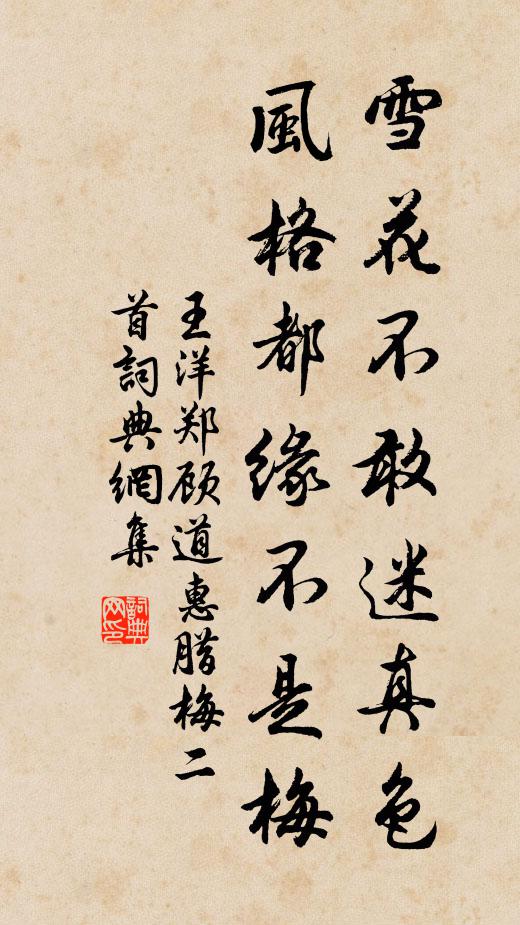 雪花不敢迷真色
風格都缘不是梅
王洋郑顾道惠腊梅二
首詞典網集
詞典网印